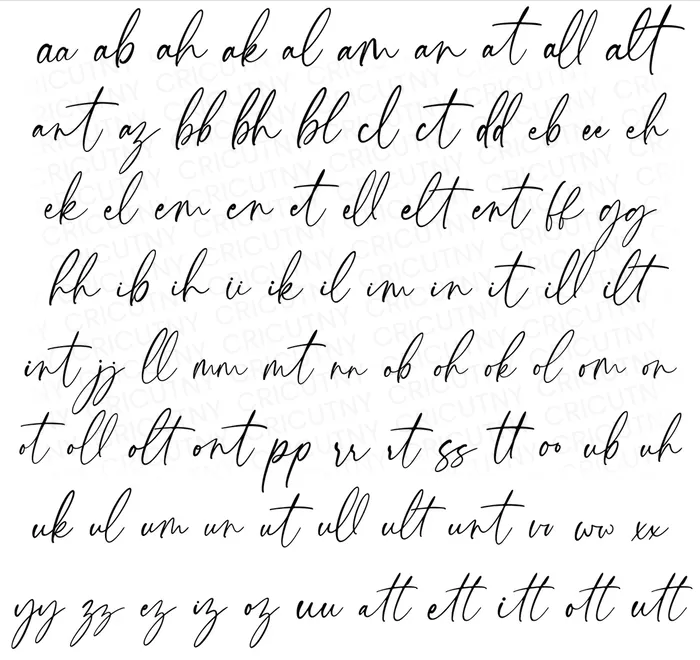 aa ab ah ak al am an at all alt
ant az bb bh bl cl ct dd eb ee eh
ek el em en et ell elt ent ff gg
hh ib ih ii ik il im in it ill ilt
int jj ll mm mt nn ob oh ok ol om on
ot oll olt ont pp rr rt ss tt oo ub uh
uk ul um un ut ull ult unt vv ww xx
yy zz ez iz oz uu att ett itt ott utt